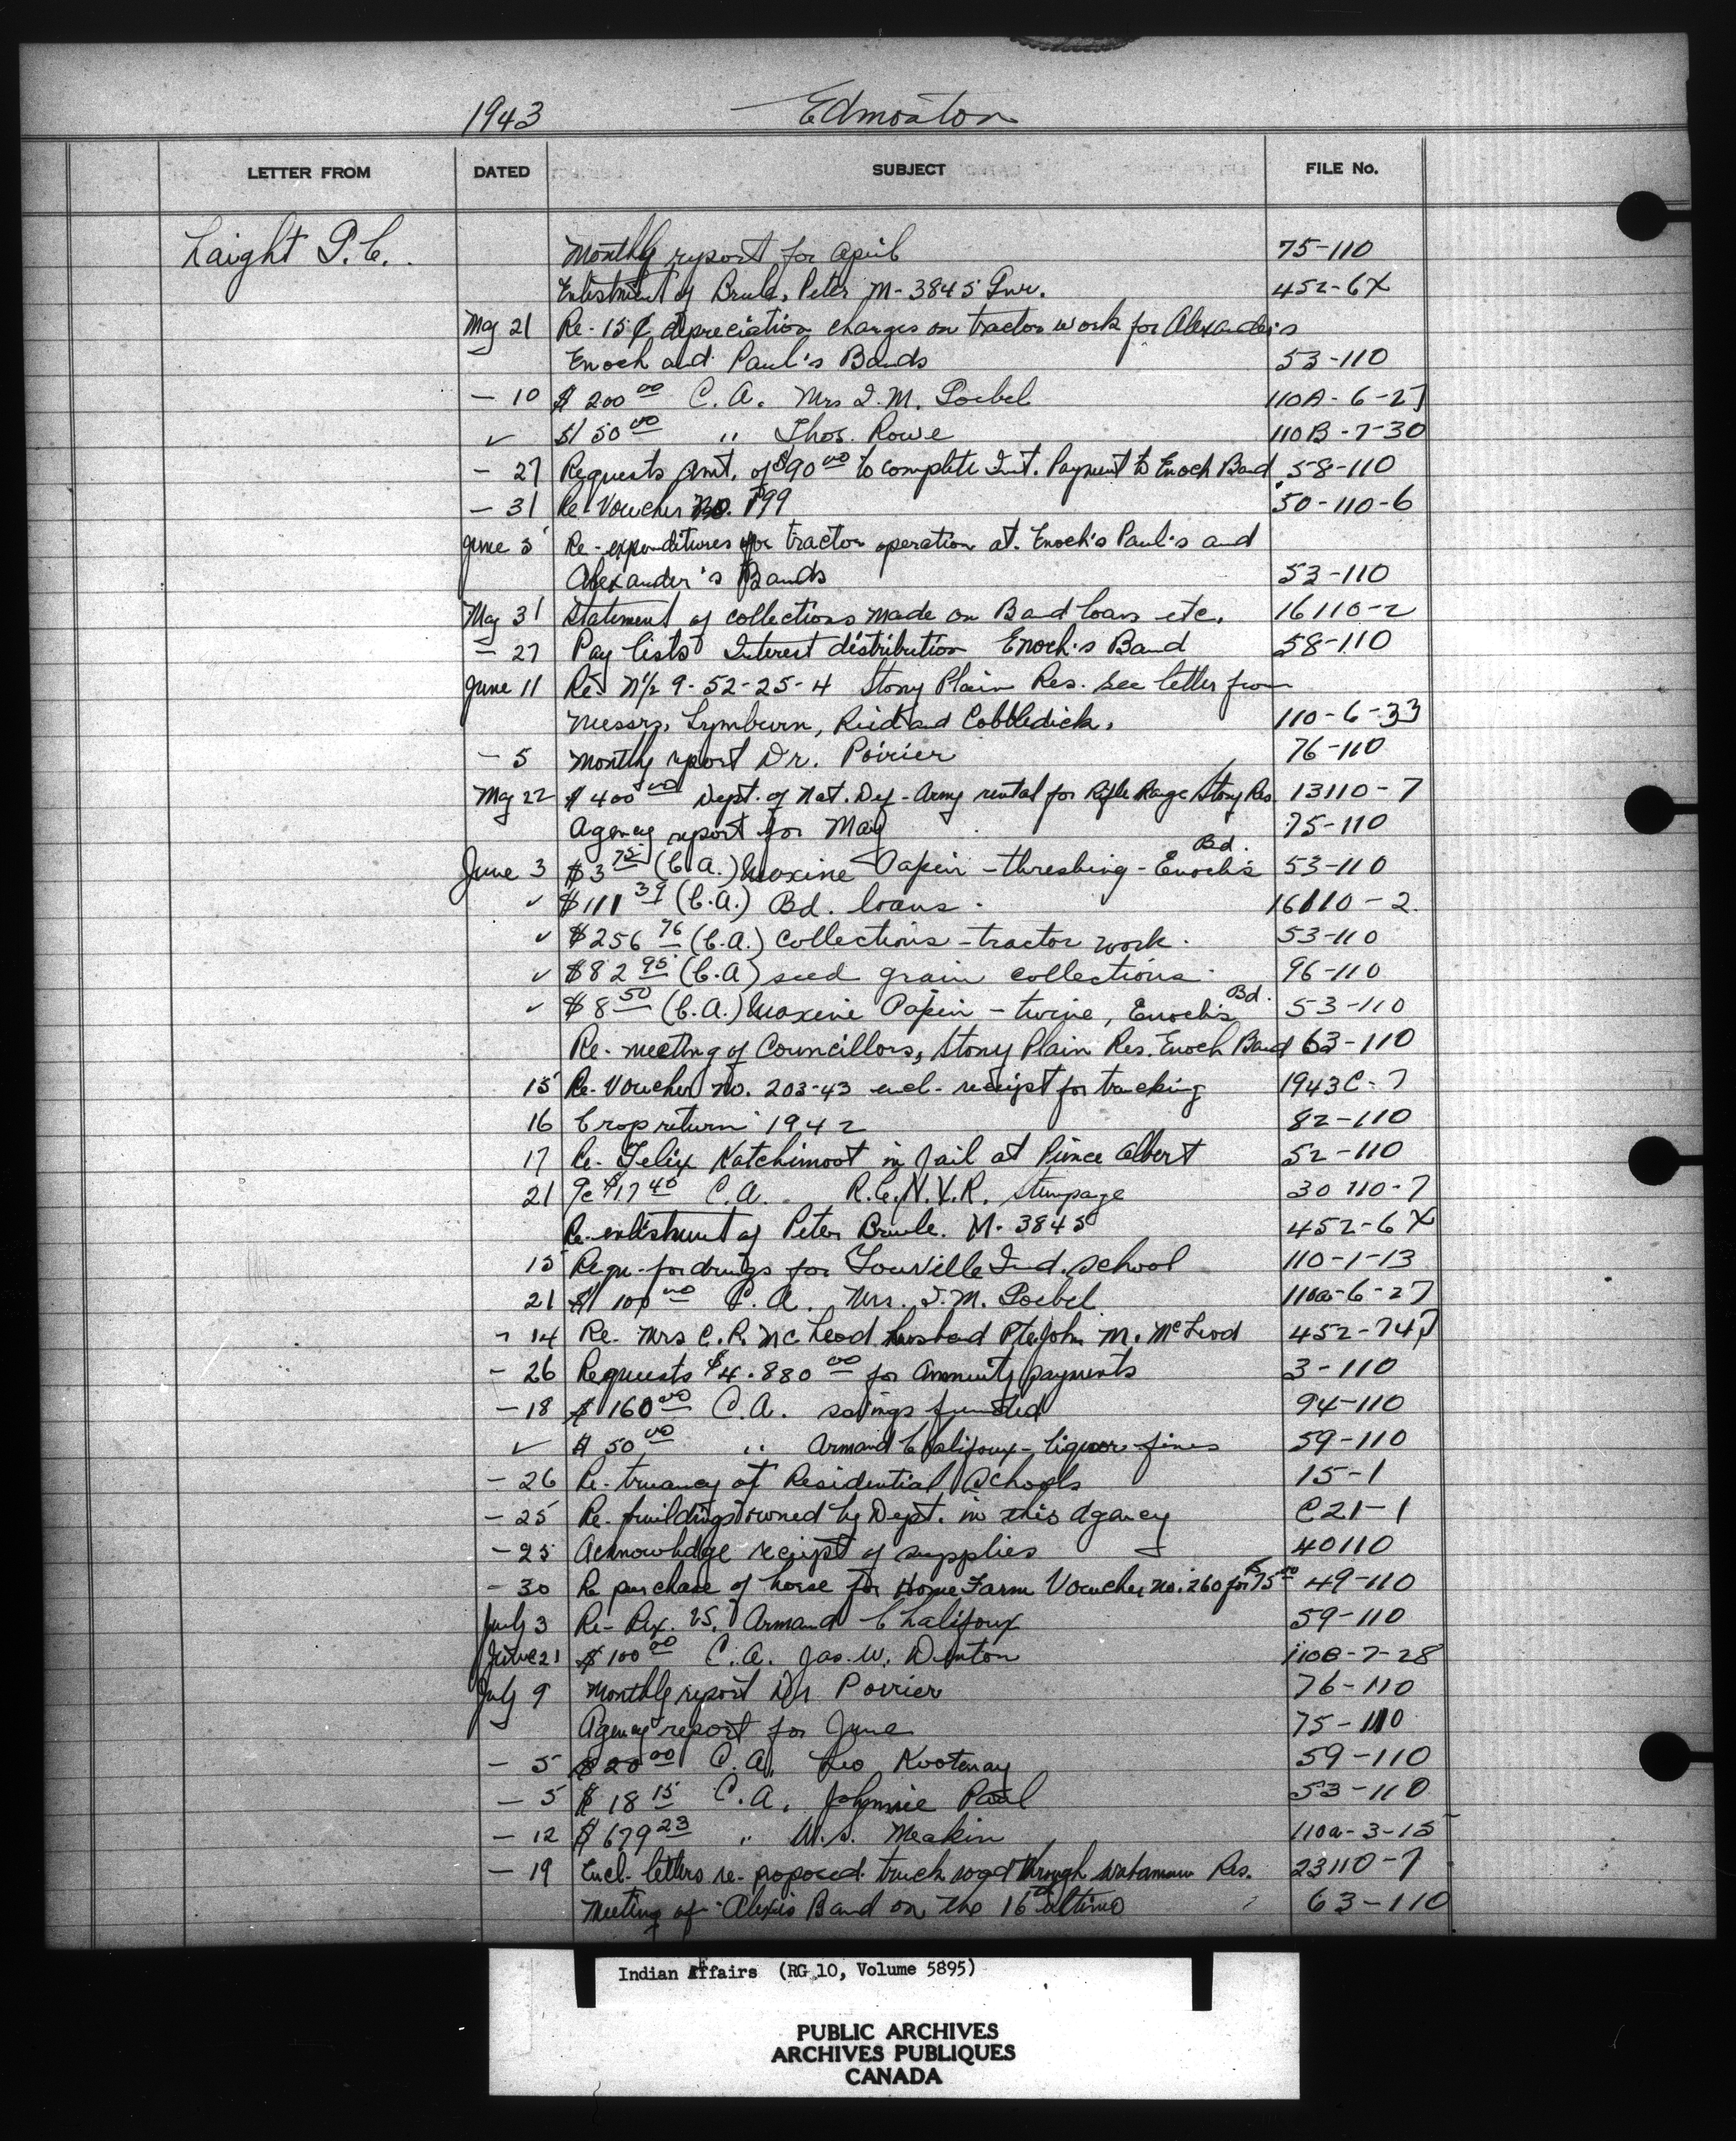 1943 Edmonton
LETTER FROM DATED SUBJECT FILE No.
Laight P.C. Monthly report for April 75-110
Enlistment of Brule, Peter M-3845 Gnr. 452-6X
May 21 Re-15¢ depreciation charges on tractor work for Alexander's
Enoch and Paul's Bands 53-110
- 10 $200 00 C.A. Mrs I.M. Loebel 110A-6-27
✓ $150 00 " Thos. Rowe 110B-7-30
- 27 Requests amt. of $90 00 to complete Int. Payment to Enoch Band 58-110
- 31 Re Voucher No. 199 50-110-6
June 5 Re-expenditures for tractor operation at. Enoch's Paul's and
Alexander's Bands 53-110
May 31 Statement of collections made on Band loans etc. 16110-2
- 27 Pay lists Interest distribution Enoch's Band 58-110
June 11 Re- N½ 9-52-25-4 Stony Plain Res. see letter from
Messrs, Lymburn, Reid and Cobbledick. 110-6-33
- 5 Monthly report Dr. Poirier 76-110
May 22 $400 00 Dept. of Nat. Def-Army rental for Rifle Range Stony Res. 13110-7
Agency report for May 75-110
June 3 $3 75 (C.A.) Maxine Papin - threshing - Enoch's Bd. 53-110
✓ $111 39 (C.A.) Bd. loans. 16110-2.
✓ $256 76 (C.A.) Collections - tractor work. 53-110
✓ $82 95 (C.A) seed grain collections. 96-110
✓ $8 50 (C.A.) Maxine Papin - twine, Enoch's Bd. 53-110
Re-meeting of Councillors, Stony Plain Res. Enoch Band 63-110
15 Re-Voucher No. 203-43 encl- receipt for trucking 1943C-7
16 Crop return 1942 82-110
17 Re-Felix Katchimoot in Jail at Prince Albert 52-110
21 $17 40 C.A. R.C.N.V.R. stumpage 30110-7
Re-enlistment of Peter Brule. M-3845 452-6X
15 Requ-for drugs for Youville Ind. School 110-1-13
21 $100 00 C.A. Mrs. I.M. Loebel 110a-6-27
- 14 Re- Mrs C.R. McLeod husband Pte John M. McLeod 452-747
- 26 Requests $4.880 00 for annuity payments 3-110
- 18 $160 00 C.A. savings funded 94-110
✓ $50 00 " Armand Chalifoux - liquor fines 59-110
- 26 Re-truancy at Residential Schools 15-1
- 25 Re-buildings owned by Dept. in this agency C21-1
- 25 Acknowledge receipt of supplies 40110
- 30 Re purchase of horse for Home Farm Voucher no. 260 for $75 00 49-110
July 3 Re- Rex. vs. Armand Chalifoux 59-110
June 21 $100 00 C.A. Jas. W. Denton 110B-7-28
July 9 Monthly report Dr Poirier 76-110
Agency report for June 75-110
- 5 $20 00 C.A. Leo Kootenay 59-110
- 5 $18 15 C.A. Johnnie Paul 53-110
- 12 $679 23 " W.S. Meakin 110a-3-15
- 19 Encl. letters re-proposed truck road through Wabamun Res. 23110-7
Meeting of Alexis Band on the 16th ultimo 63-110
Indian Affairs (RG 10, Volume 5895)
PUBLIC ARCHIVES
ARCHIVES PUBLIQUES
CANADA